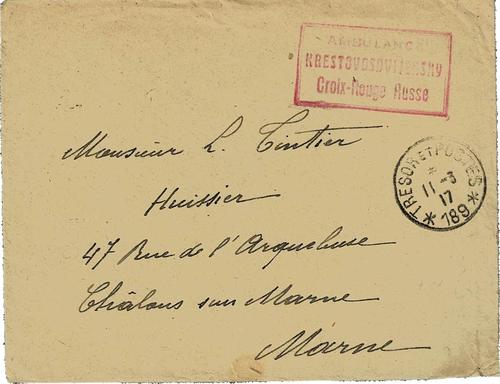 AMBULANCE
KRESTOVOSDVIJENSKY
Croix-Rouge Russe
Monsieur L. Tintier
TRESOR ET POSTES
* 11-3 17
* 189 *
Huissier
47 Rue de l'Arquebuse
Châlons sur Marne
Marne